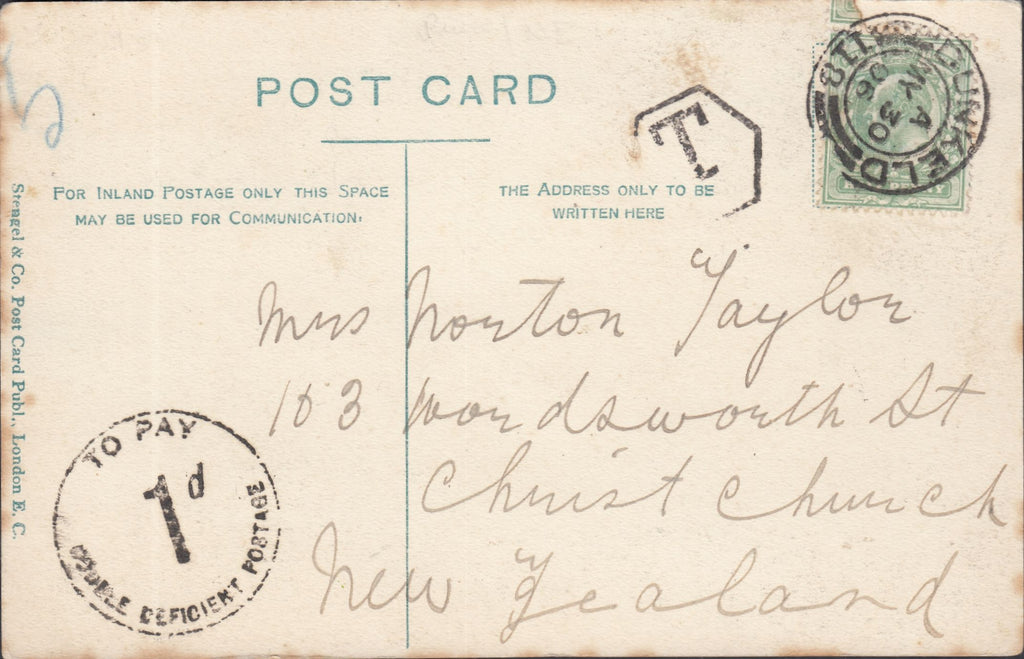 POST CARD
FOR INLAND POSTAGE ONLY THIS SPACE
MAY BE USED FOR COMMUNICATION.
THE ADDRESS ONLY TO BE
WRITTEN HERE
T
DUNKELD
118
A
MY 30
06
Mrs Norton Taylor
103 Wordsworth St
Christ Church
New Zealand
TO PAY
1d
DOUBLE DEFICIENT POSTAGE
Stengel & Co. Post Card Publ., London E. C.